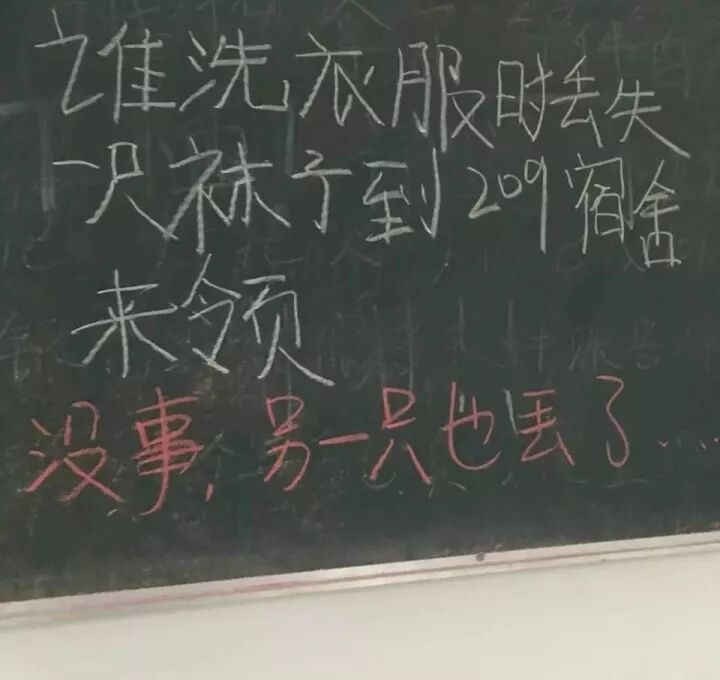 谁洗衣服时丢失
一只袜子到209宿舍
来领
没事,另一只也丢了....